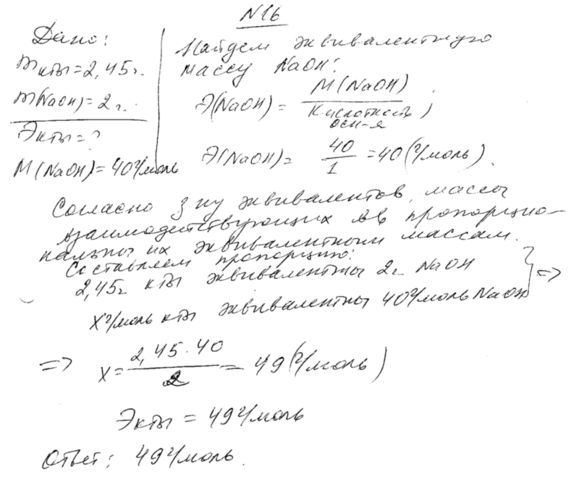 N16
Дано:
mк-ты=2,45г.
m(NaOH)=2г.
Эк-ты=?
M(NaOH)=40г/моль
Найдем эквивалентную
массу NaOH:
Э(NaOH)= M(NaOH)/кислотность осн-я
Э(NaOH)= 40/1 =40(г/моль).
Согласно з-ну эквивалентов, массы
взаимодействующих в-в пропорцио-
нальны их эквивалентным массам.
Составляем пропорцию:
2,45г к-ты эквивалентны 2г NaOH
Xг/моль к-ты эквивалентны 40г/моль NaOH } =>
=> X= 2,45·40/2 =49(г/моль)
Эк-ты = 49г/моль
Ответ: 49г/моль.